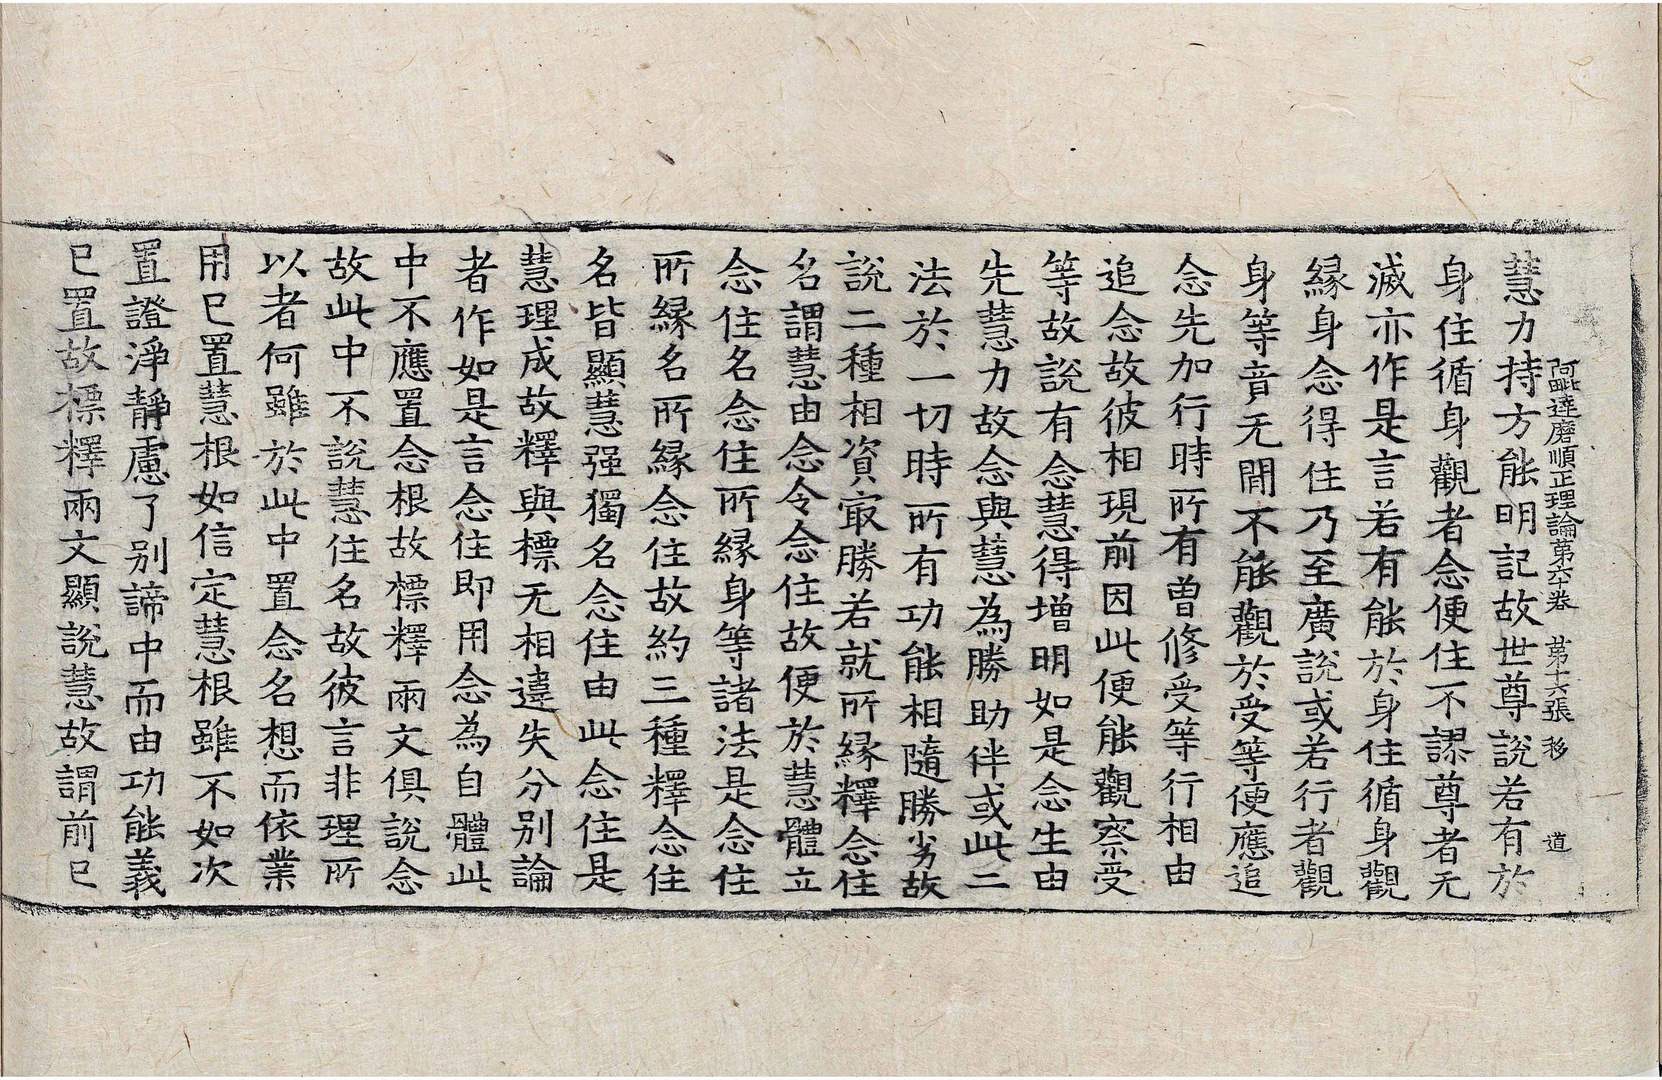 慧力持方能明記故世尊說若有於
阿毗達磨順正理論第六十卷 第十六張 移 道
身住循身觀者念便住不謬尊者无
滅亦作是言若有能於身住循身觀
緣身念得住乃至廣說或若行者觀
身等音无間不能觀於受等便應追
念先加行時所有曾修受等行相由
追念故彼相現前因此便能觀察受
等故說有念慧得增明如是念生由
先慧力故念與慧為勝助伴或此二
法於一切時所有功能相隨勝劣故
說二種相資㝡勝若就所緣釋念住
名謂慧由念令念住故便於慧體立
念住名念住所緣身等諸法是念住
所緣名所緣念住故約三種釋念住
名皆顯慧强獨名念住由此念住是
慧理成故釋與標无相違失分別論
者作如是言念住即用念為自體此
中不應置念根故標釋兩文俱說念
故此中不說慧住名故彼言非理所
以者何雖於此中置念名想而依業
用已置慧根如信定慧根雖不如次
置證淨靜慮了別諦中而由功能義
已置故標釋兩文顯說慧故謂前已